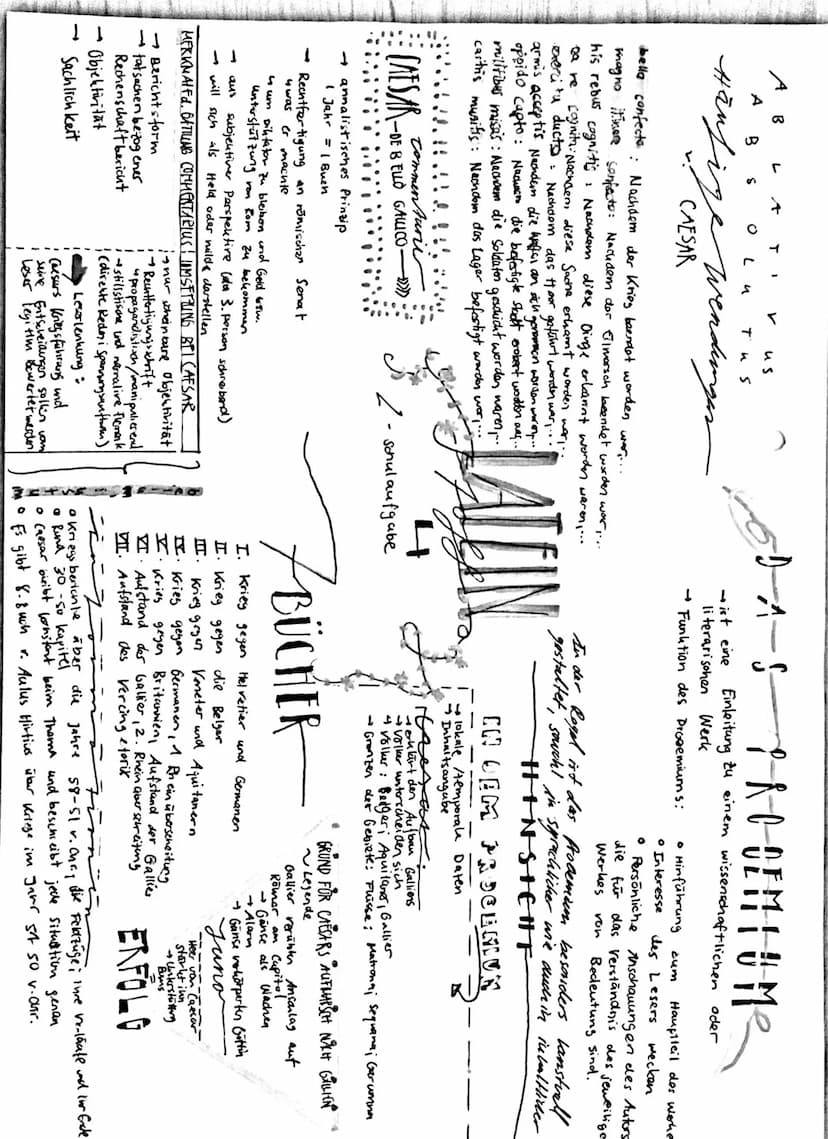 ABLATIVUS
ABSOLUTUS
Häufige Wendungen
v. CAESAR
bello confecto : Nachdem der Krieg beendet worden war,...
magno itinere confecto: Nachdem der Eilmarsch beendet worden war,...
his rebus cognitis : Nachdem diese Dinge erkannt worden waren,...
ea re cognita: Nachdem diese Sache erkannt worden war,...
exercitu ducto : Nachdem das Heer geführt worden war,...
armis acceptis Nachdem die Waffen an sich genommen worden waren,...
oppido capto : Nachdem die befestigte Stadt erobert worden war,...
militibus missis : Nachdem die Soldaten geschickt worden waren,...
castris munitis : Nachdem das Lager befestigt worden war,...
DAS PROOEMIUM
→ ist eine Einleitung zu einem wissenschaftlichen oder
literarischen Werk
→ Funktion des Prooemiums:
• Hinführung zum Hauptteil des Werkes
• Interesse des Lesers wecken
• Persönliche Anschauungen des Autors
die für das Verständnis des jeweiligen
Werkes von Bedeutung sind.
In der Regel ist das Prooemium besonders kunstvoll
gestaltet, sowohl in sprachlicher wie auch in inhaltlicher
HINSICHT
LATEIN
4
Stofgebiete
2-schulaufgabe
commentarii
CAESAR-DE BELLO GALLICO
→ annalistisches Prinzip
1 Jahr = 1 Buch
→ Rechtfertigung an römischen Senat
↳ was er machte
↳ um Diktator zu bleiben und Geld bzw.
Unterstützung von Rom zu bekommen
→ aus subjektiver Perspektive (da 3. Person schreibend)
→ will sich als Held oder milde darstellen
IN DEM PROOEMIUM
→ lokale/temporale Daten
→ Inhaltsangabe
→ erklärt den Aufbau Galliens
→ Völker unterscheiden sich
→ Völker: Belgae; Aquitano; Gallier
→ Grenzen der Gebiete: Flüsse: Matrona; Sequana; Garumna
BÜCHER
I. Krieg gegen Helvetier und Germanen
II. Krieg gegen die Belger
III. Krieg gegen Veneter und Aquitanern
IV. Krieg gegen Germanen, 1. Rheinüberschreitung
V. Krieg gegen Britannien, Aufstand der Gallier
VI. Aufstand der Gallier, 2. Rheinüberschreitung
VII. Aufstand des Vercingetorix
GRUND FÜR CAESARS AUFMARSCH NACH GALLIEN
~ Legende
Gallier verübten Anschlag auf
Römer am Capitol
→ Gänse als Wachen
→ Alarm
→ Gänse verkörperten Göttin
Juno
Heer von Caesar
stärker im
→ Unterstützung
ERFOLG
MERKMALE d. GATTUNG COMMENTARIUS
UMSETZUNG BEI CAESAR
→ Berichtsform
→ tatsachenbezogener
Rechenschaftsbericht
→ Objektivität
→ Sachlichkeit
→ nur scheinbare Objektivität
→ Rechtfertigungsschrift
↳ propagandistisch/manipulierend
→ stilistische und narrative Elemente
(direkte Reden; Spannungsaufbau)
Leserlenkung:
Caesars Kriegsführung und
seine Entscheidungen sollen vom
Leser legitim bewertet werden
Informationen
• Kriegsberichte über die Jahre 58-51 v. Chr., die Feldzüge; ihre Verläufe und ihr Ende
• Rund 30-50 Kapitel
• Caesar bleibt konstant beim Thema und beschreibt jede Situation genau
• Es gibt 8. Buch v. Aulus Hirtius über Kriege im Jahr 51 50 v. Chr.